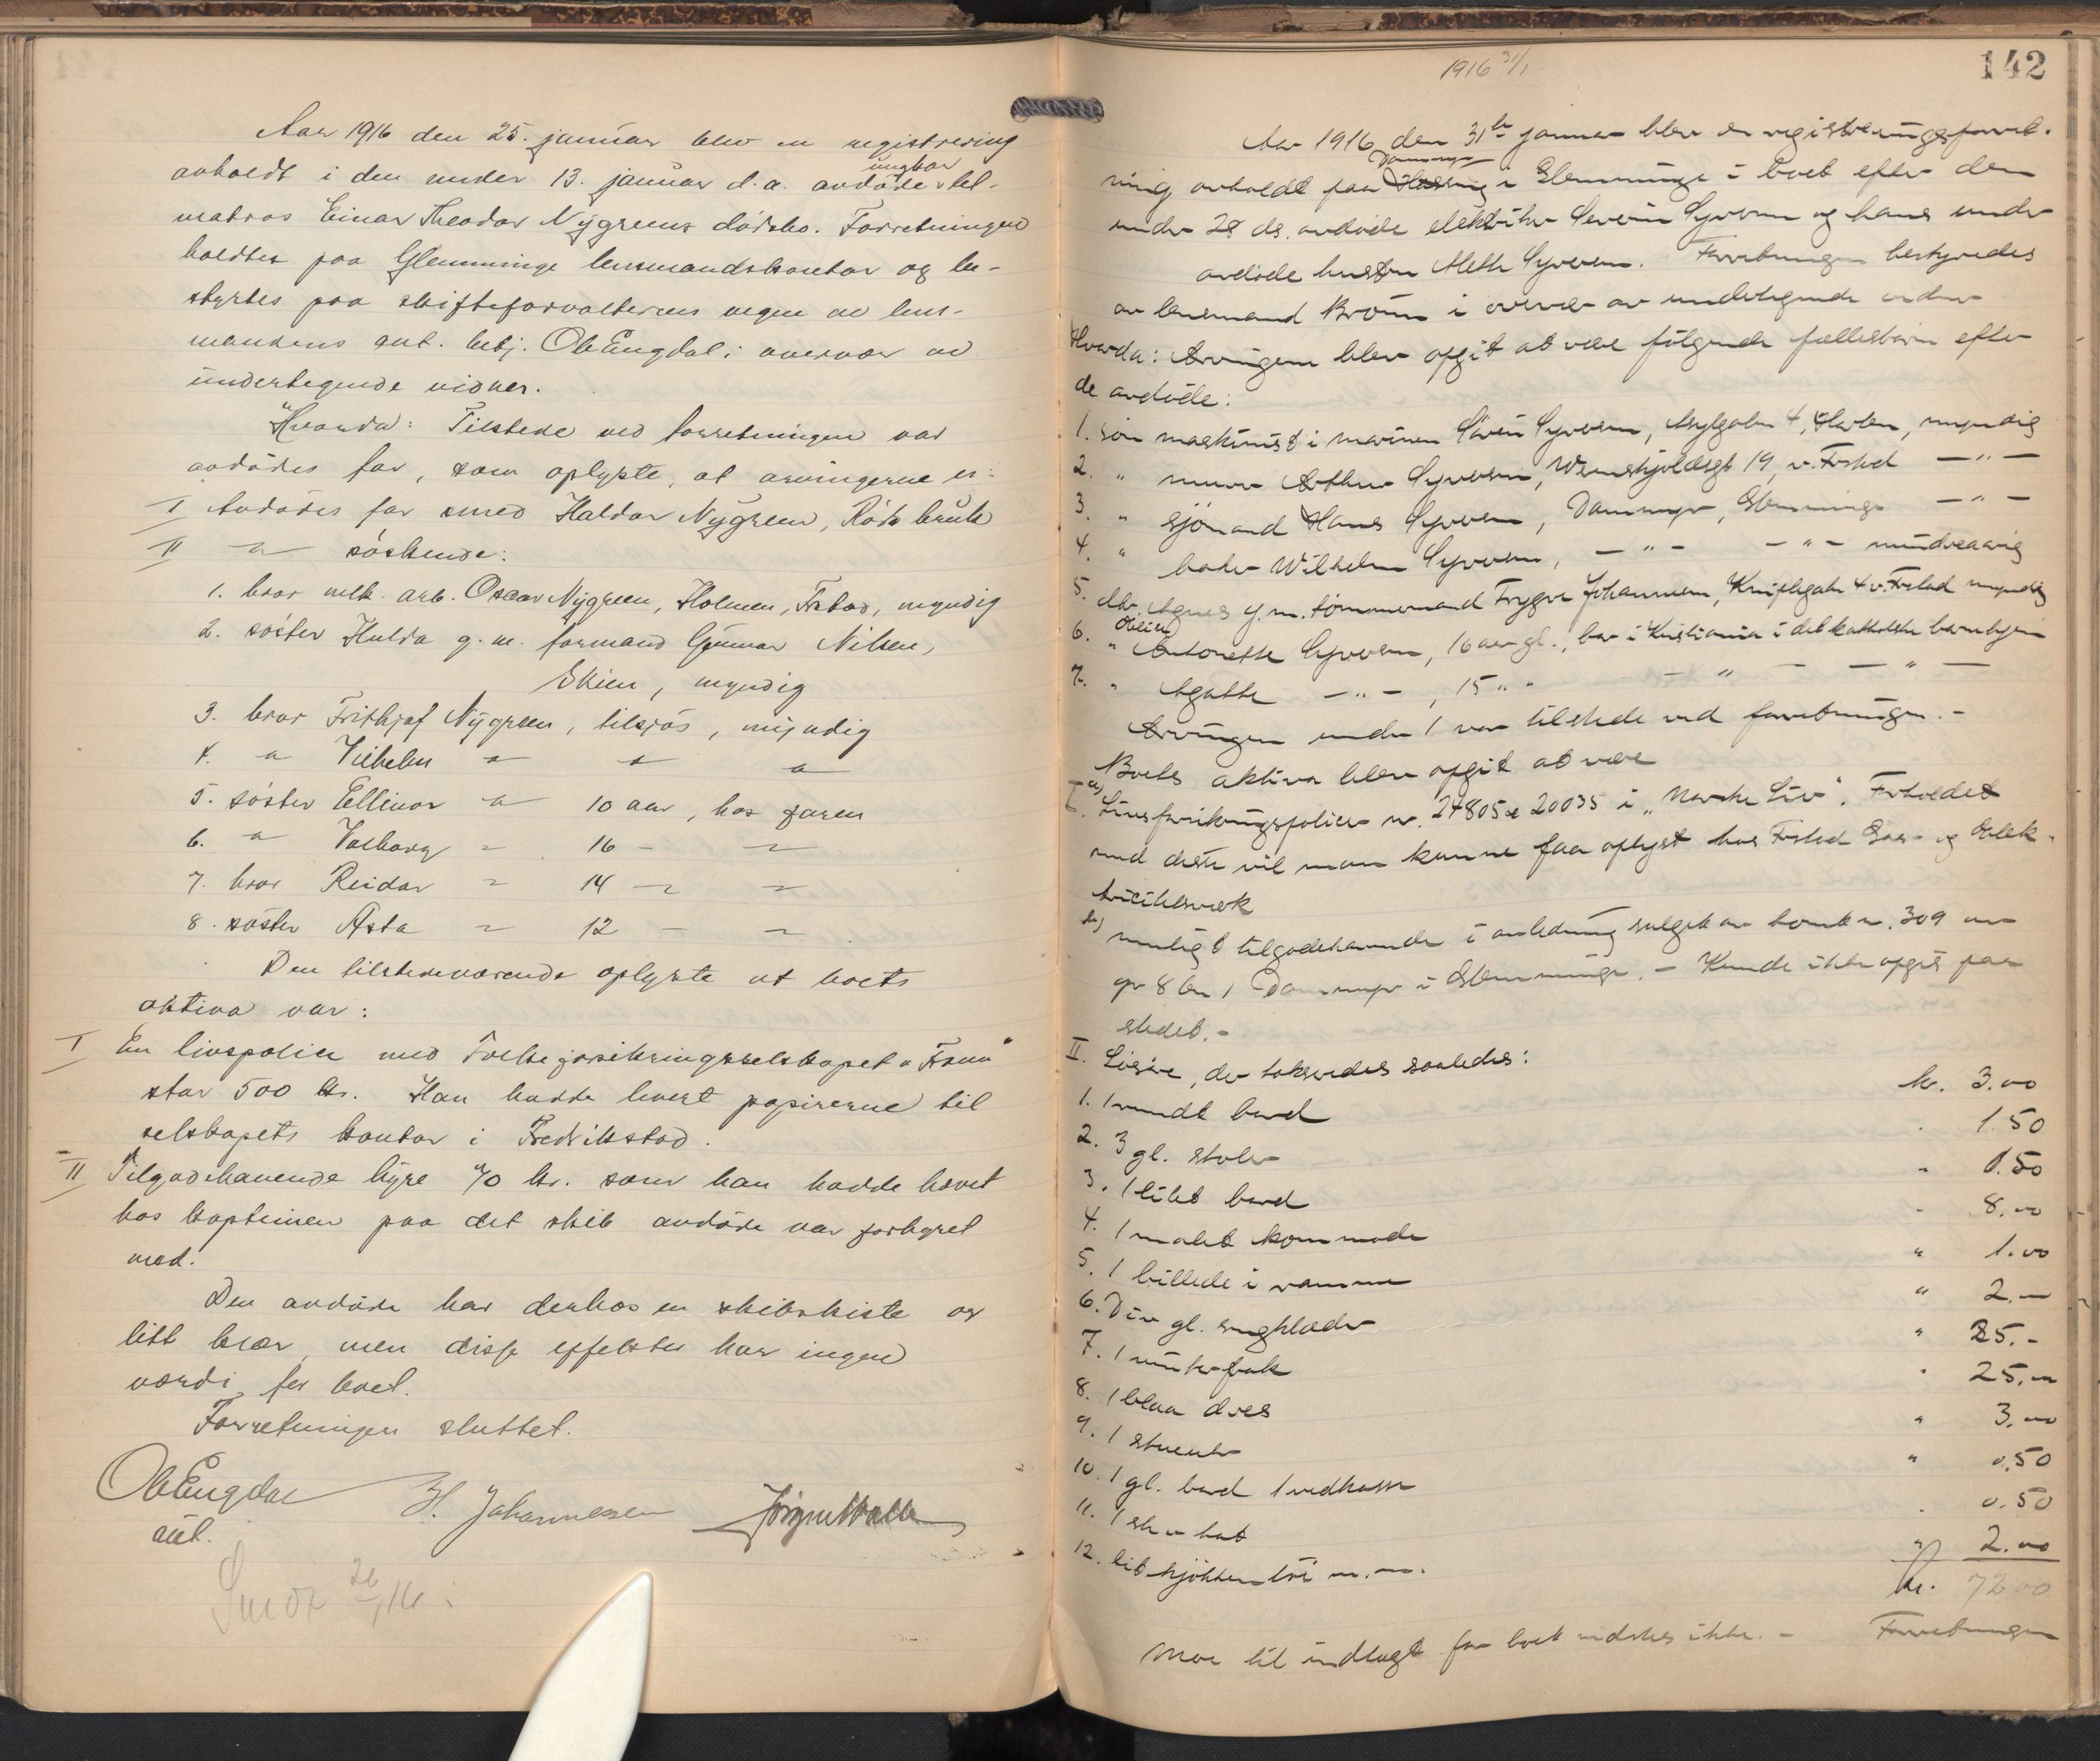 Aar 1916 den 25. januar blev en registrering
avholdt i den under 13. januar d.a. avdöde ungkar let-
matros Einar Theodor Nygreens dödsbo. Forretningen
holdtes paa Glemminge lensmandskontor og be-
styrtes paa skifteforvalterens vegne av lens-
mandens aut. betj. Ole Engdal i overvær av
undertegnede vidner.
Hvorda: Tilstede ved forretningen var
avdödes far, som oplyste, at arvingerne er:
I Avdödes far smed Haldor Nygreen, Röds bruk
II " söskende:
1. bror melk. arb. Oscar Nygreen, Holmen, Fr.stad, myndig
2. söster Hulda g. m. formand Gunnar Nilsen,
Skien, myndig
3. bror Frithjof Nygreen, tilsjös, myndig
4. " Vilhelm " " "
5. söster Ellinor " 10 aar, hos faren
6. " Valborg " 16 - "
7. bror Reidar " 14 " "
8. söster Asta " 12 - "
Den tilstedeværende oplyste at boets
aktiva var:
I En livspolice med Folkeforsikringsselskapet "Fram"
stor 500 kr. Han hadde levert papirerne til
selskapets kontor i Fredrikstad.
II Tilgodehavende hyre 70 kr. som han hadde hævet
hos kapteinen paa det skib avdöde var forhyret
med.
Den avdöde har derhos en skibskiste og
litt klær, men disse effekter har ingen
værdi for boet.
Forretningen sluttet.
Ole Engdal H. Johannesen Jörgen
aut.
26/1 16.
142
1916 31/1
Aar 1916 den 31te januar blev en registreringsforret-
ning avholdt paa Dammyr i Glemminge i boet efter den
under 28 ds. avdöde elektriker Severin Syversen og hans under
avdöde hustru Mette Syversen. Forretningen bestyredes
av lensmand Bröun i overvær av undertegnede vidner
Hvorda: Arvingerne blev opgit at være følgende fællesbarn efter
de avdöde:
1. sön maskinist i marinen Sören Syversen, Asylgaten 4, Horten, myndig
2. " murer Arthur Syversen, Wernskjoldsgt 19, v. Fr.stad —"—
3. " sjömand Hans Syversen, Dammyr, Glemminge —"—
4. " baker Wilhelm Syversen, —"— —"— mindreaarig
5. dtr. Agnes g.m. tömmermand Trygve Johannesen, Kniplegate 4 v. Fr.stad myndig
6. " Antonette Syversen, 16 aar gl., bor i Kristiania i det katholske barnehjem
7. " Agathe —"—, 15 " " — " — — " —
Arvingen under 1 var tilstede ved forretningen.-
Boets aktiva blev opgit at være
I. a) Livsforsikringspolicer nr. 24805 & 20035 i "Norske Liv". Forholdet
med disse vil man kunne faa oplyst hos Fr.stad Gas- og Elek-
tricitetsverk
b) muligt tilgodehavende i anledning salget av bruk nr. 309 av
gr 8 br 1 Dammyr i Glemminge.- Kunde ikke opgis paa
stedet.-
II. Lösöre, der takseredes saaledes:
1. 1 rundt bord kr. 3.00
2. 3 gl. stoler " 1.50
3. 1 litet bord " 0.50
4. 1 malet kommode " 8.00
5. 1 billede i ramme " 1.00
6. Div gl. sengklæder " 2.—
7. 1 vinterfrak " 25.-
8. 1 blaa dres " 25.—
9. 1 stueuhr " 3.00
10. 1 gl. bord 1 vedkasse " 0.50
11. 1 hat " 0.50
12. lit kjökkentöi m.m. " 2.00
kr. 72 00
Mere til indtægt for boet vidstes ikke.- Forretningen